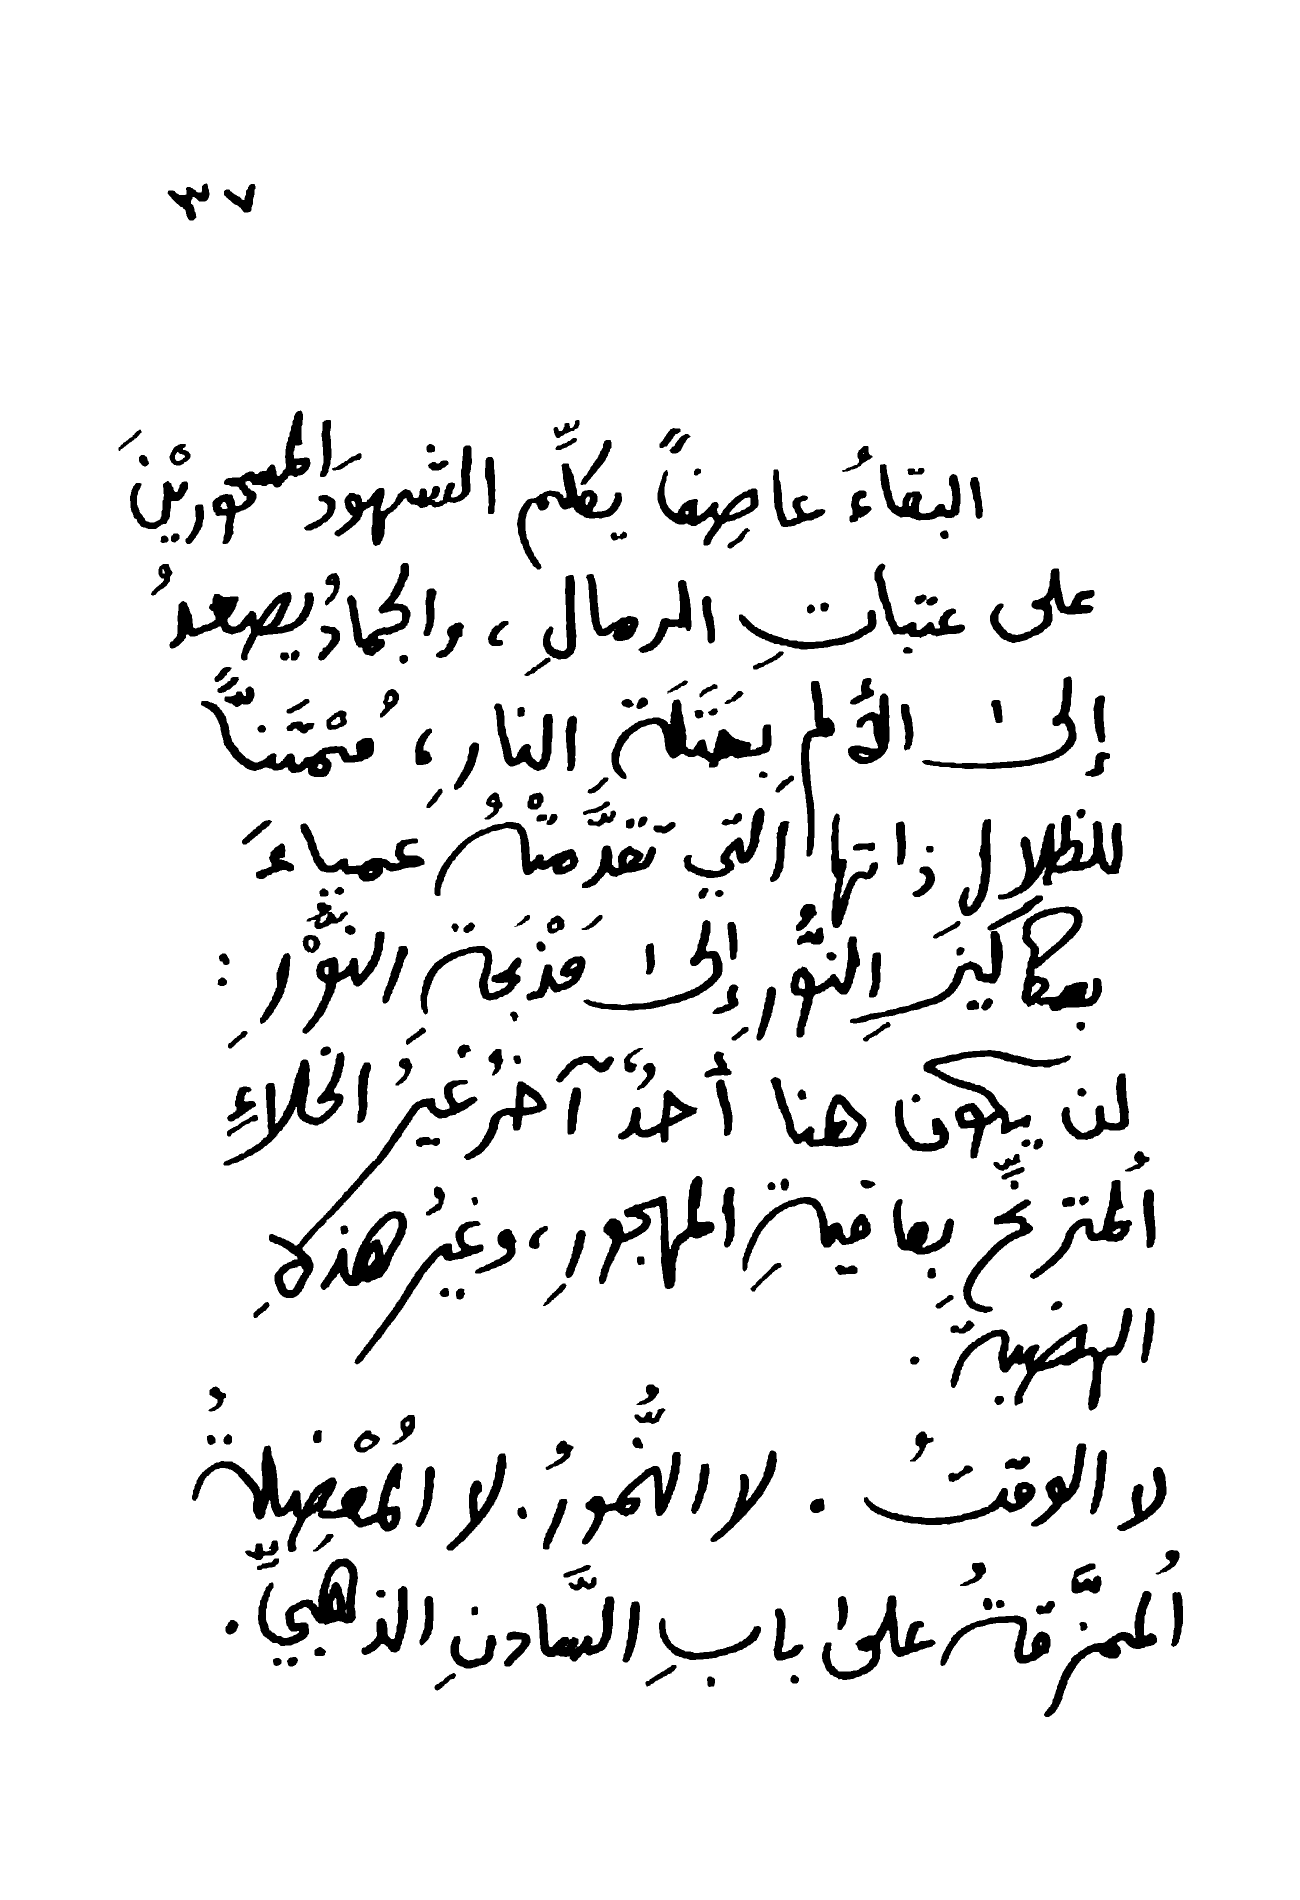 ٣٧
البقاءُ عاصِفاً يكلِّم الشّهودَ المسحورِيْنَ
على عتباتِ الرمالِ، والجمادُ يصعدُ
إلىٰ الألمِ بِحَنَلَةِ النارِ، مُمْتَنّاً
للظلال ذاتها التي تقدَّمتْهُ عمياءَ
بعكاكيزَ النُّورِ إلىٰ مَذْبَحَةِ النُّوْرِ :
لن يكون هنا أحدٌ آخرُ غيرُ الخلاءِ
اُلمترنِّحِ بِعافيةِ المهجورِ، وغيرُ هذهِ
الهضبةِ .
لا الوقتُ . لا النُّمورُ. لا المُعْضِلةُ
اُلممزَّقةُ علىٰ بابِ السَّادنِ الذهبيِّ.